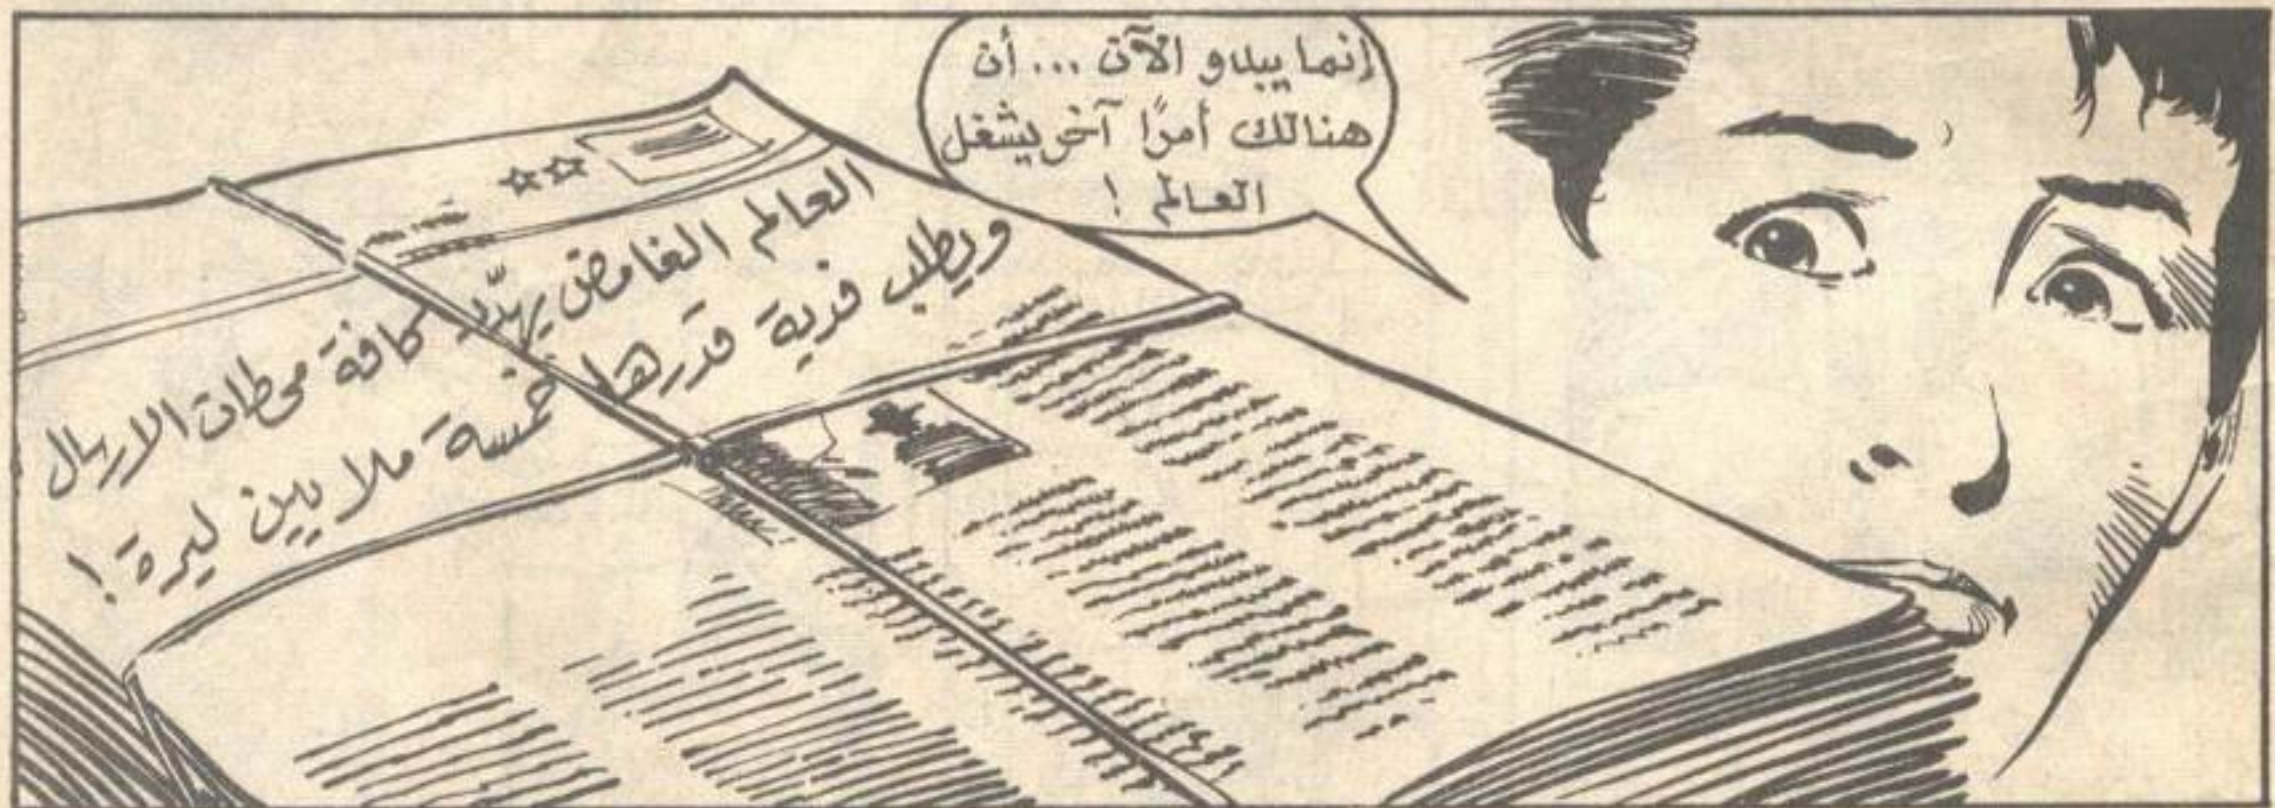 إنما يبدو الآن ... أن
هنالك أمرًا آخر يشغل
العالم !
العالم الغامض يهدّد كافة محطات الارسال
ويطلب فدية قدرها خمسة ملايين ليرة !